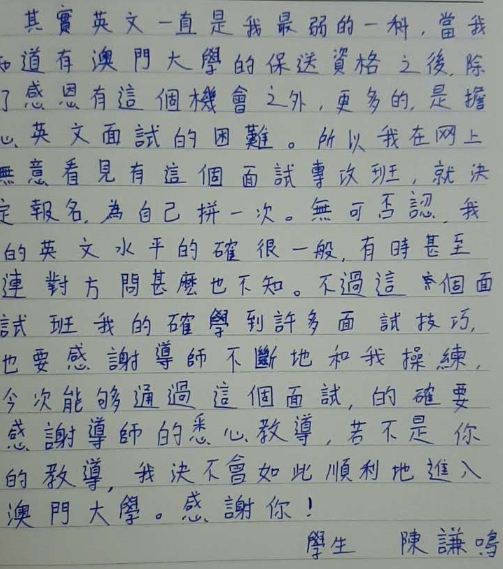 其實英文一直是我最弱的一科，當我
知道有澳門大學的保送資格之後，除
了感恩有這個機會之外，更多的，是擔
心英文面試的困難。所以我在网上
無意看見有這個面試專攻班，就決
定報名，為自己拼一次。無可否認，我
的英文水平的確很一般，有時甚至
連對方問甚麼也不知。不過這個面
試班我的確學到許多面試技巧，
也要感謝導師不斷地和我操練，
今次能够通過這個面試，的確要
感謝導師的悉心教導，若不是你
的教導，我決不會如此順利地進入
澳門大學。感謝你！
學生 陳謙鳴